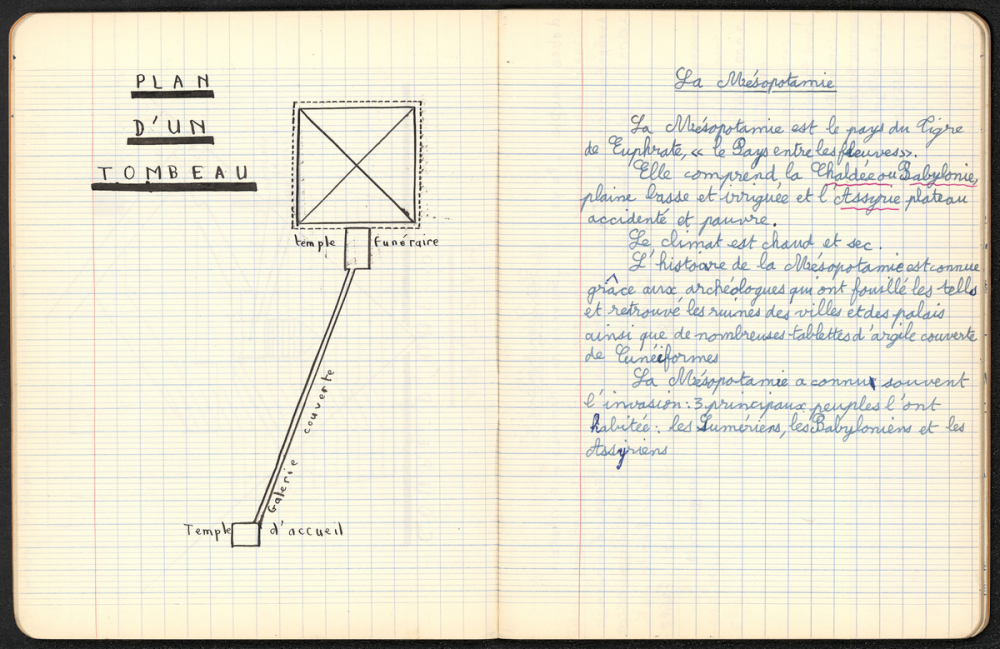 PLAN
D'UN
TOMBEAU
temple funéraire
Galerie couverte
Temple d'accueil
La Mésopotamie
La Mésopotamie est le pays du Tigre
de Euphrate, « le Pays entre les fleuves».
Elle comprend la Chaldée ou Babylonie,
plaine basse et irriguée et l'Assyrie plateau
accidenté et pauvre.
Le climat est chaud et sec.
L'histoire de la Mésopotamie est connue
grâce aux archéologues qui ont fouillé les tells
et retrouvé les ruines des villes et des palais
ainsi que de nombreuses tablettes d'argile couverte
de Cunéiformes
La Mésopotamie a connu souvent
l'invasion : 3 principaux peuples l'ont
habitée : les Sumériens, les Babyloniens et les
Assyriens